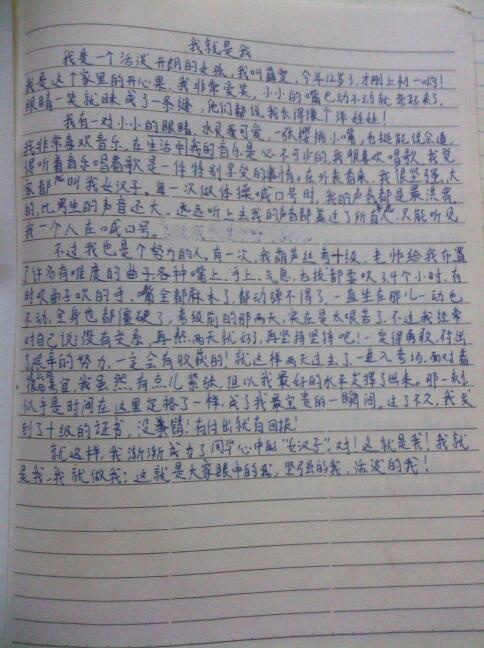 我就是我
我是一个活泼开朗的女孩,我叫薛雯,今年12岁了,才刚上初一哟!
我是这个家里的开心果,我非常爱笑,小小的嘴巴动不动就张起来了,
眼睛一笑就眯成了一条缝,他们都说我长得像个洋娃娃!
我有一对小小的眼睛,水灵灵可爱,一张樱桃小嘴,也挺能说会道,
我非常喜欢音乐,在生活中我的音乐是必不可少的,我很喜欢唱歌,我觉
得听着音乐唱着歌是一件特别享受的事情。在外表看来,我很坚强,大
家都叫我女汉子。每一次做体操喊口号时,我的声音都是最洪亮
的,比男生的声音还大。远远听上去我的声音都盖过了所有人,只能听见
我一个人在喊口号。
不过我也是个努力的人,有一次,我葫芦丝考十级,老师给我布置
了许多有难度的曲子各种嘴上、手上、气息,右板都要吹了,4个小时,有
时吹曲子吹的手,嘴全都麻木了,都动弹不得了,一直坐在那儿一动也
不动,全身也都僵硬了,考级前的那两天,实在是太艰苦了,不过我经常
对自己说:没有关系,再熬两天就好了,再坚持坚持吧!一定得勇敢,付出
了艰辛的努力,一定会有收获的!就这样两天过去了,一进入考场,面对着
很多考官,我虽然有点儿紧张,但以我最好的水平发挥了出来。那一刻,
似乎是时间在这里定格了一样,成了我最宝贵的一瞬间。过了不久,我收
到了十级的证书,没错!有付出就有回报!
就这样,我渐渐成为了同学心中的“女汉子”,对!这就是我!我就
是我,我就做我;这就是大家眼中的我,坚强的我,活泼的我!